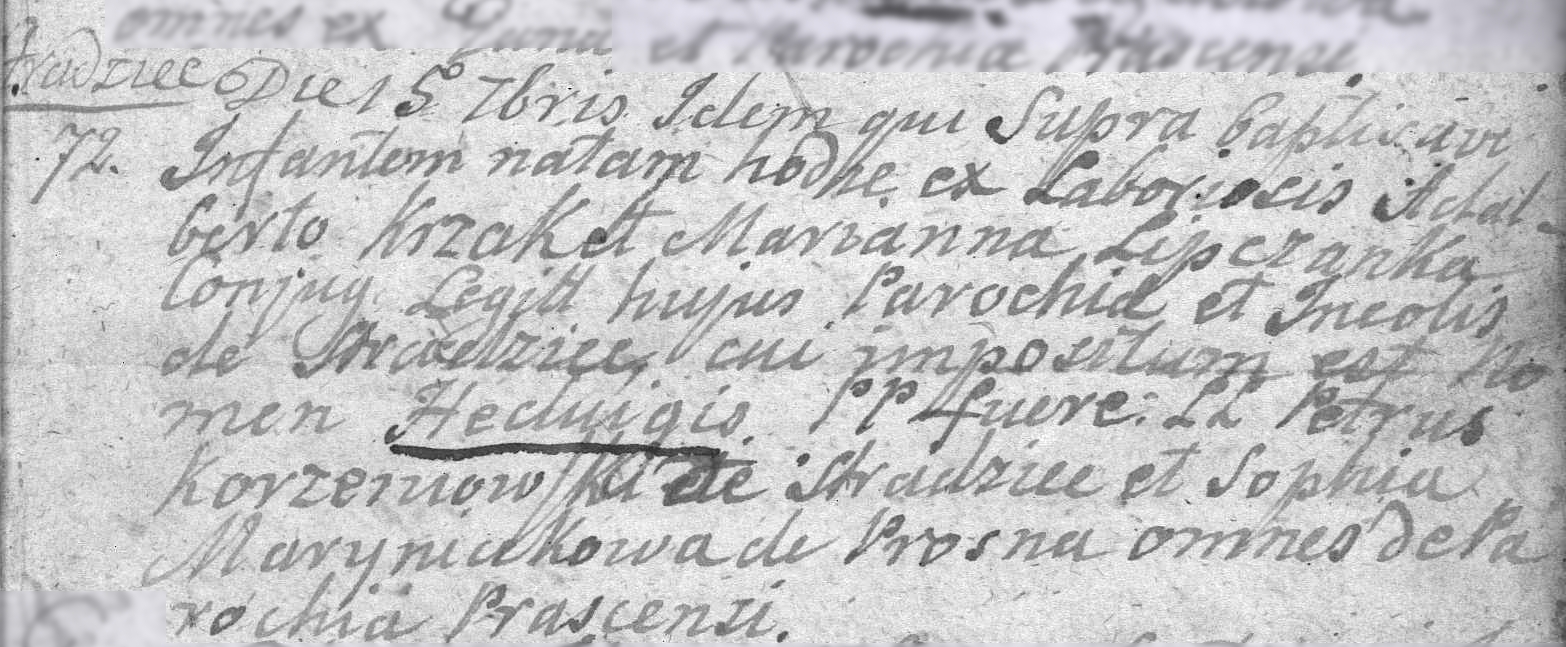 omnes ex
et Parochia Prascensi
Stradziec Die 15° 7bris Idem qui Supra baptisavi
72. Infantem natam hodie ex Laboriosis Adal-
berto Krzak et Marianna Lipczanka
Conjug. Legitt hujus Parochia et Incolis
de Stradziec, cui impositum est No
men Heduigis. PP fuere. LL Petrus
Korzeniowski de Stradziec et Sophia
Maryniakowa de Prosna omnes de Pa
rochia Prascensi.